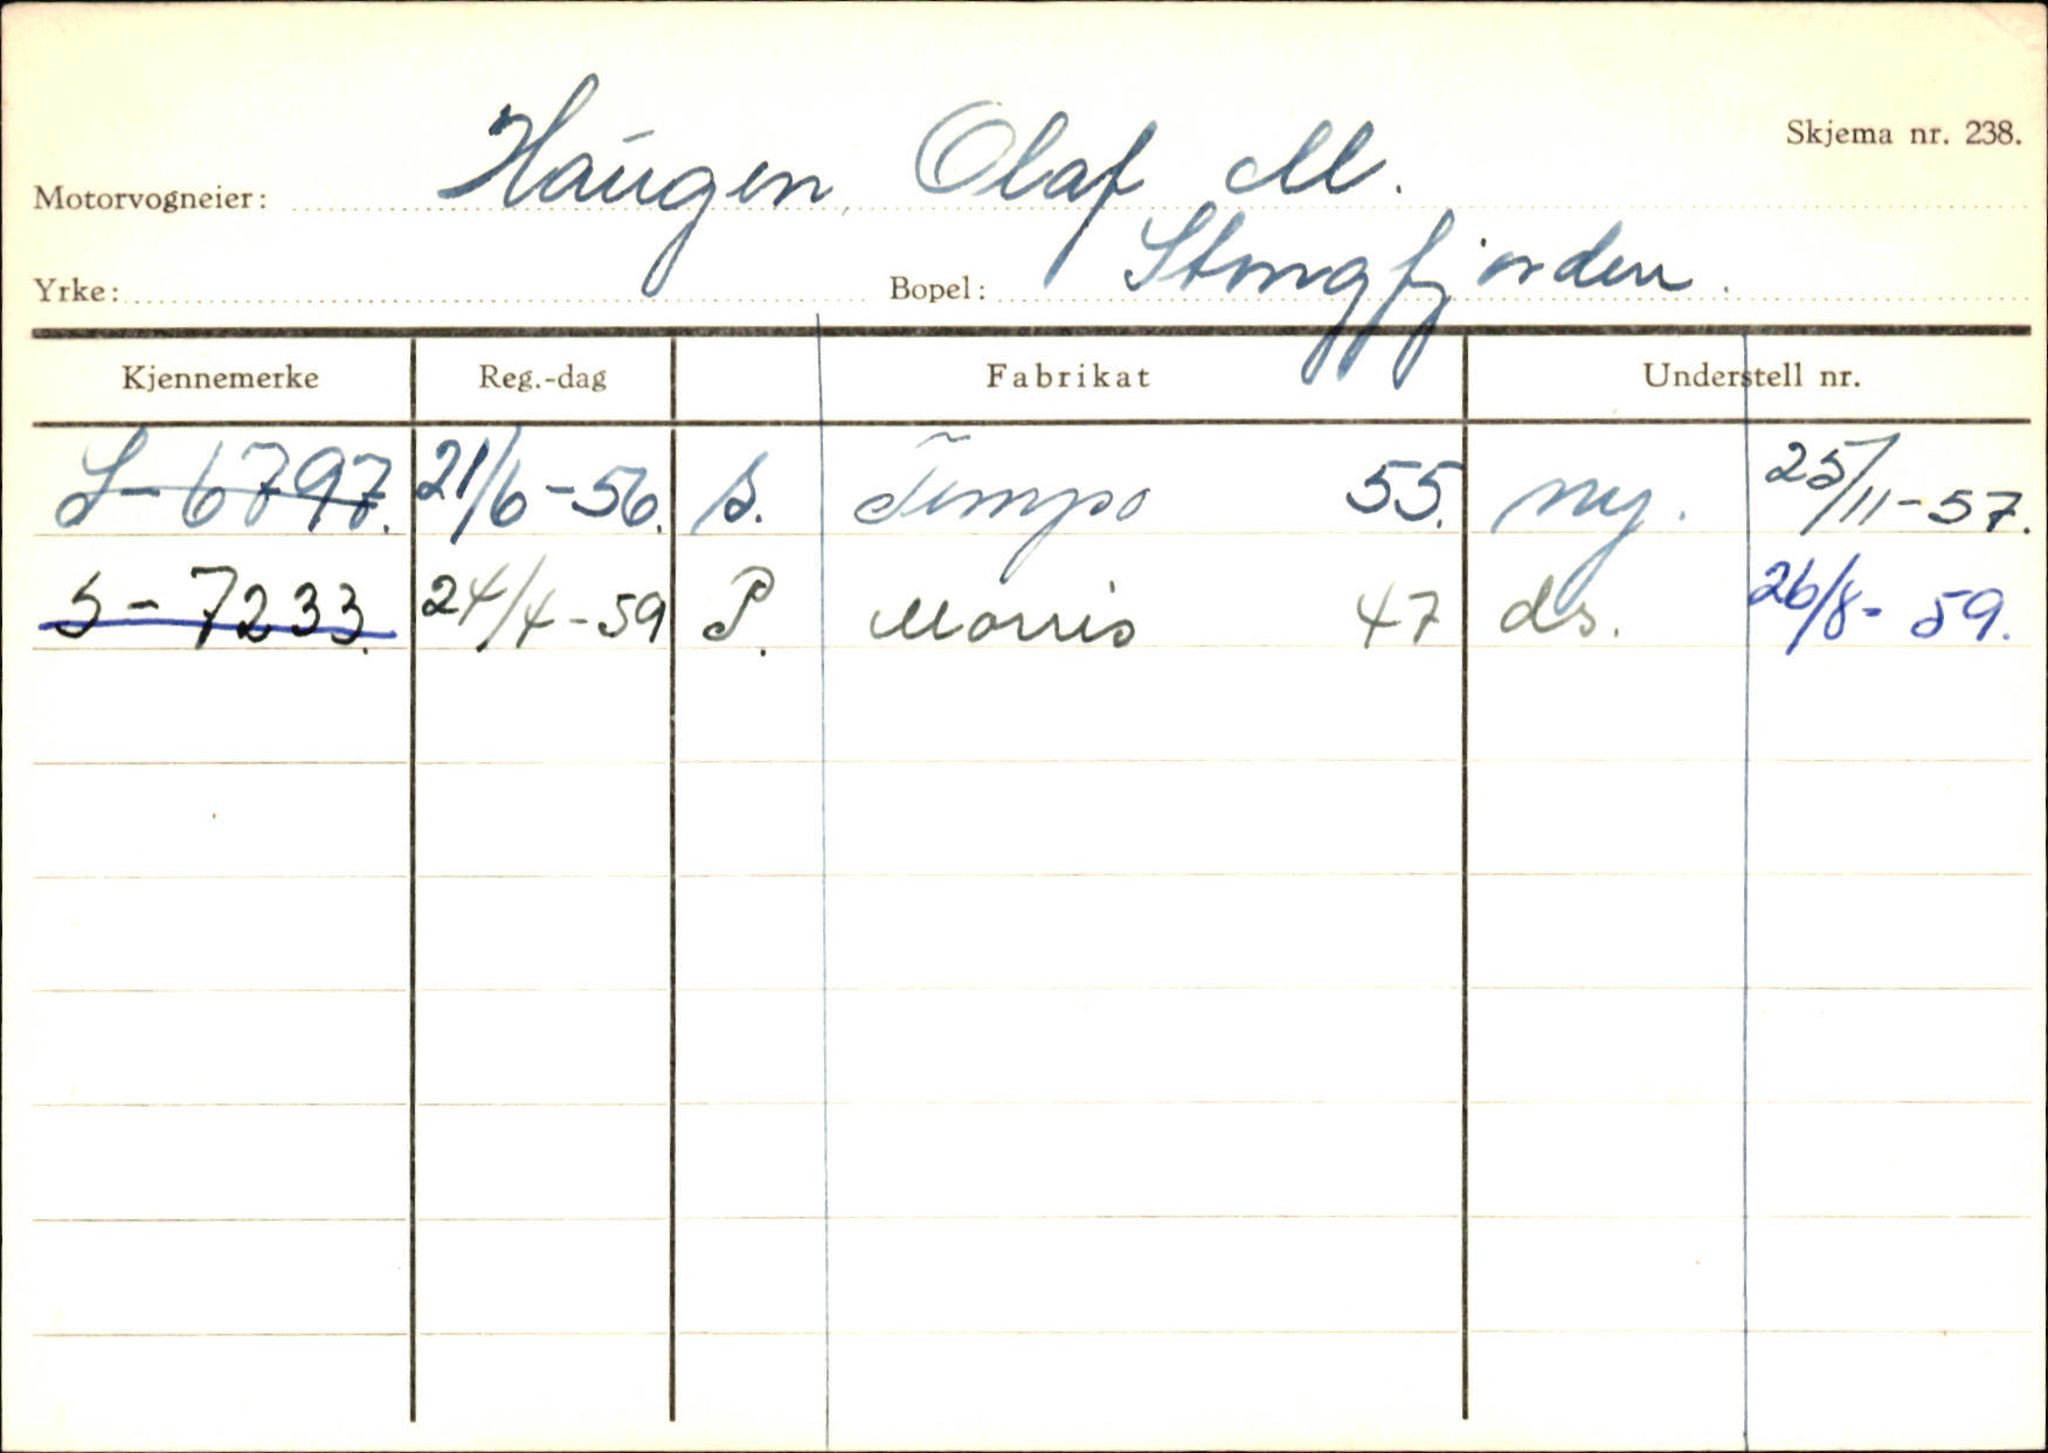 Skjema nr. 238.
Motorvogneier: Haugen, Olaf M.
Yrke: Bopel: Stongfjorden.
Kjennemerke Reg.-dag Fabrikat Understell nr.
S-6797. 21/6-56. S. Tempo 55. ny. 25/11-57.
S-7233. 24/4-59 P. Morris 47 ds. 26/8-59.